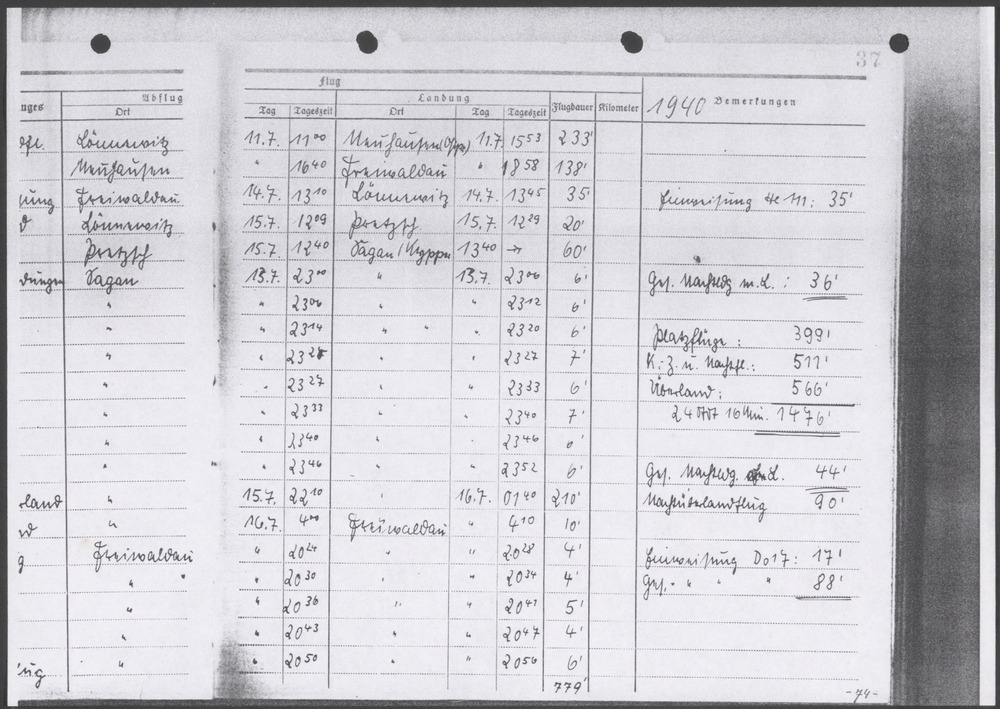 37
Flug
uges Abflug Landung Flugdauer Kilometer 1940 Bemerkungen
Ort Tag Tageszeit Ort Tag Tageszeit
Lönnewitz 11.7. 11 00 Neuhausen 11.7. 15 53 233'
Neuhausen " 16 40 Freiwaldau " 18 58 138'
Freiwaldau 14.7. 13 10 Lönnewitz 14.7. 13 45 35' Einweisung He 111: 35'
Lönnewitz 15.7. 12 09 Pretzsch 15.7. 12 29 20'
Pretzsch 15.7. 12 40 Sagan/Küpper 13 40 → 60'
dungen Sagan 15.7. 23 00 " 15.7. 23 06 6' Ges. Nachtldg m. L.: 36'
" " 23 06 " " 23 12 6'
" " 23 14 " " " 23 20 6' Platzflüge: 399'
" " " " 23 27 7' K.-Z. u. Nachtfl.: 511'
" " 23 27 " " 23 33 6' Überland: 566'
" " 23 33 " " 23 40 7' 24 16 Min. 1476'
" " 23 40 " " 23 46 6'
" " 23 46 " " 23 52 6' Ges. Nachtldg. L. 44'
rland " 15.7. 22 10 " 16.7. 01 40 210' Nachtüberlandflug 90'
" 16.7. 4 00 Freiwaldau " 4 10 10'
g Freiwaldau " 20 24 " " 20 28 4' Einweisung Do 17: 17'
" " " 20 30 " " 20 34 4' Ges. " " " 88'
" " 20 36 " " 20 41 5'
" " 20 43 " " 20 47 4'
ug " " 20 50 " " 20 56 6'
779'
-74-